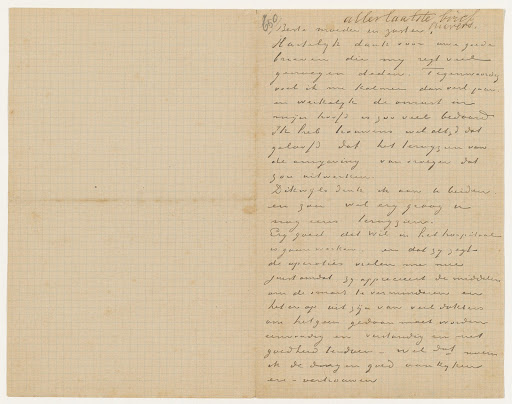 650
allerlaatste brief
Auvers.
Beste moeder en zuster,
Hartelijk dank voor uwe goede
brieven die my regt veel
genoegen deden. Tegenwoordig
voel ik me kalmer dan verl. jaar
en werkelyk de onrust in
mijn hoofd is zoo veel bedaard.
Ik heb trouwens wel altyd dat
geloofd dat het terugzien van
de omgeving van vroeger dat
zou uitwerken.
Dikwijls denk ik aan U beiden
en zou wel erg graag U
nog eens terugzien.
Erg goed dat Wil in het hospitaal
is gaan werken en dat zy zegt
de operaties vielen me mee
juist omdat zy apprecieert de middelen
om de smart te verminderen en
het er op uit zijn van veel dokters
om hetgeen gedaan moet worden
eenvoudig en verstandig en met
goedheid te doen – wel dat noem
ik de dingen goed aankyken
en – vertrouwen